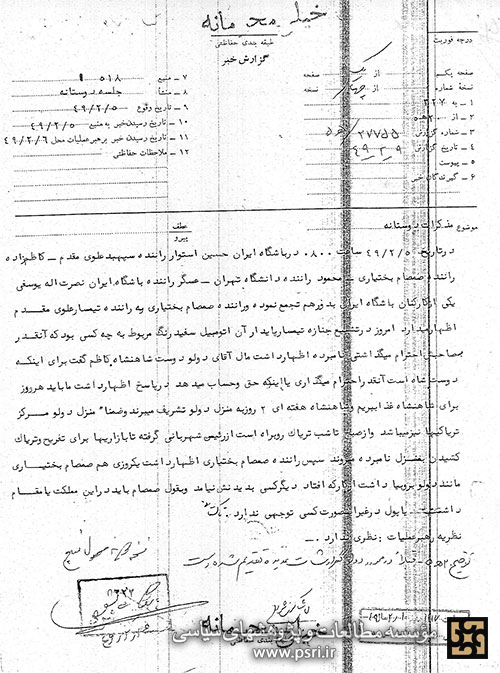 خیلی محرمانه
طبقه بندی حفاظتی
گزارش خبر
درجه فوریت
صفحه یکم از صفحه
نسخه شماره از چهار نسخه
۱ ـ به ۳۲۷
۲ ـ از ۲۰ ه‍ ۵
۳ ـ شماره گزارش ۲۷۷۵۵
۴ ـ تاریخ گزارش ۴۹/۲/۹
۵ ـ پیوست
۶ ـ گیرندگان خبر
۷ ـ منبع ۵۱۸
۸ ـ منشأ جلسه دوستانه
۹ ـ تاریخ وقوع ۴۹/۲/۵
۱۰ ـ تاریخ رسیدن خبر به منبع ۴۹/۲/۵
۱۱ ـ تاریخ رسیدن خبر برهبر عملیات محل ۴۹/۲/۶
۱۲ ـ ملاحظات حفاظتی
موضوع مذکرات دوستانه
عطف
پیرو
در تاریخ ۴۹/۲/۵ ساعت ۰۸۰۰ در باشگاه ایران حسین استوار راننده سپهبد علوی مقدم ـ کاظم زاده
راننده صمصام بختیاری ـ محمود راننده دانشگاه تهران ـ عسگر راننده باشگاه ایران نصرت اله یوسفی
یکی از کارکنان باشگاه ایران بدورهم تجمع نموده و راننده صمصام بختیاری به راننده تیمسار علوی مقدم
اظهار میدارد امروز در تشییع جنازه تیمسار پایدار آن اتومبیل سفید رنگ مربوط به چه کسی بود که آنقدر
بصاحبش احترام میگذاشتی نامبرده اظهار داشت مال آقای دولو دوست شاهنشاه کاظم گفت برای اینکه
دوست شاه است آنقدر احترام میگذاری یا اینکه حق و حساب میدهد در پاسخ اظهار داشت ما باید هر روز
برای شاهنشاه غذا ببریم و شاهنشاه هفته ای ۲ روز به منزل دولو تشریف میبرند و ضمناً منزل دولو مرکز
تریاکیها نیز میباشد و از صبح تا شب تریاک روبراه است از رئیس شهربانی گرفته تا بازاریها برای تفریح و تریاک
کشیدن بمنزل نامبرده میروند سپس راننده صمصام بختیاری اظهار داشت یکروزی هم صمصام بختیاری
مانند دولو برو بیا داشت از کار که افتاد دیگر کسی بدیدنش نیامد و بقول صمصام باید در این مملکت یا مقام
داشت یا پول در غیر اینصورت کسی توجهی ندارد .
نظریه رهبر عملیات : نظری ندارد .
خیلی محرمانه
مؤسسه مطالعات و پژوهشهای سیاسی
www.psri.ir